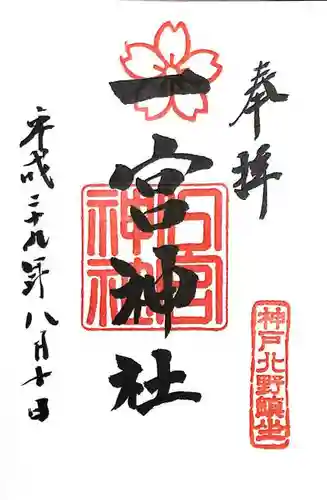 奉拝
一宮神社
一宮神社
神戸北野鎮坐
平成二十九年八月十日